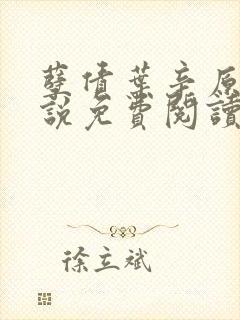 孽債葉辛原
說免費閱讀
徐立斌